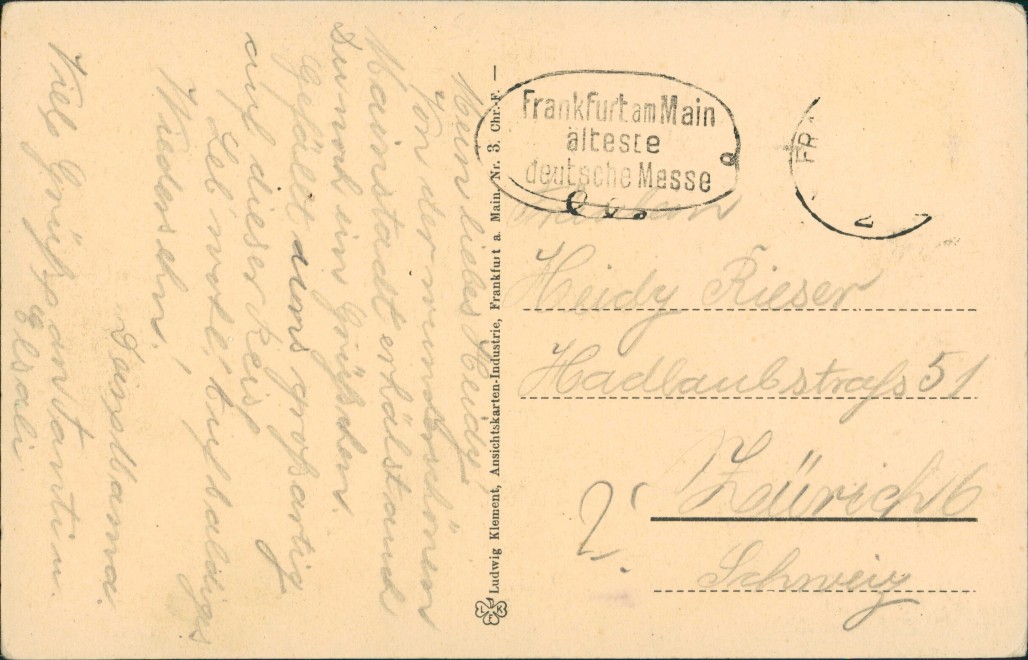 Mein liebes Heidy
Von der wunderschönen
Mainstadt erhälst auch
Du noch ein Grüßchen.
Gefällt uns großartig
auf dieser Reis
Leb' wohl, auf baldiges
Wiedersehn,
Mama.
Viele Grüße von Tantin
Elsali
Ludwig Klement, Ansichtskarten-Industrie, Frankfurt a. Main. Nr. 3. Chr.-F. —
Frankfurt am Main
älteste
deutsche Messe
FR
2
Heidy Rieser
Hadlaubstraße 51
Zürich 6
Schweiz